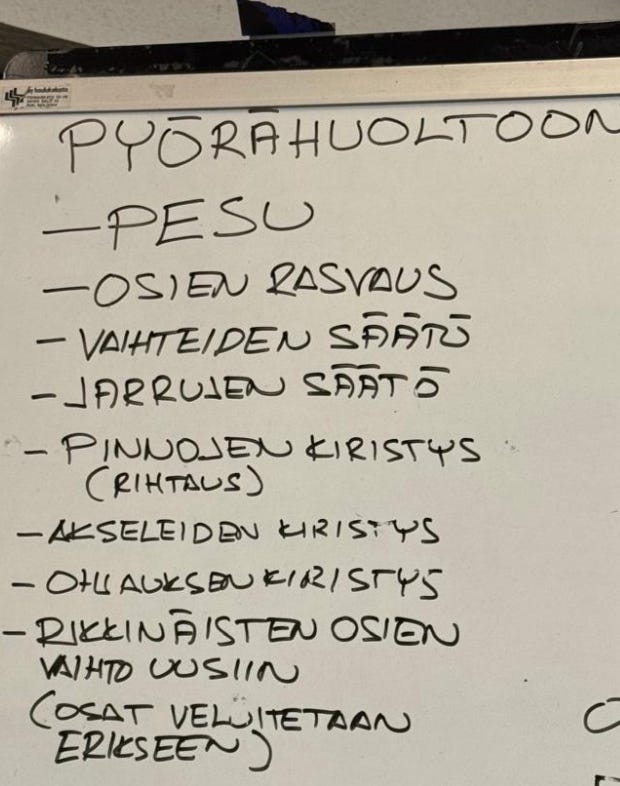 PYÖRÄHUOLTOON
- PESU
- OSIEN RASVAUS
- VAIHTEIDEN SÄÄTÖ
- JARRUJEN SÄÄTÖ
- PINNOJEN KIRISTYS
(RIHTAUS)
- AKSELEIDEN KIRISTYS
- OHJAUKSEN KIRISTYS
- RIKKINÄISTEN OSIEN
VAIHTO UUSIIN
(OSAT VELOITETAAN
ERIKSEEN)